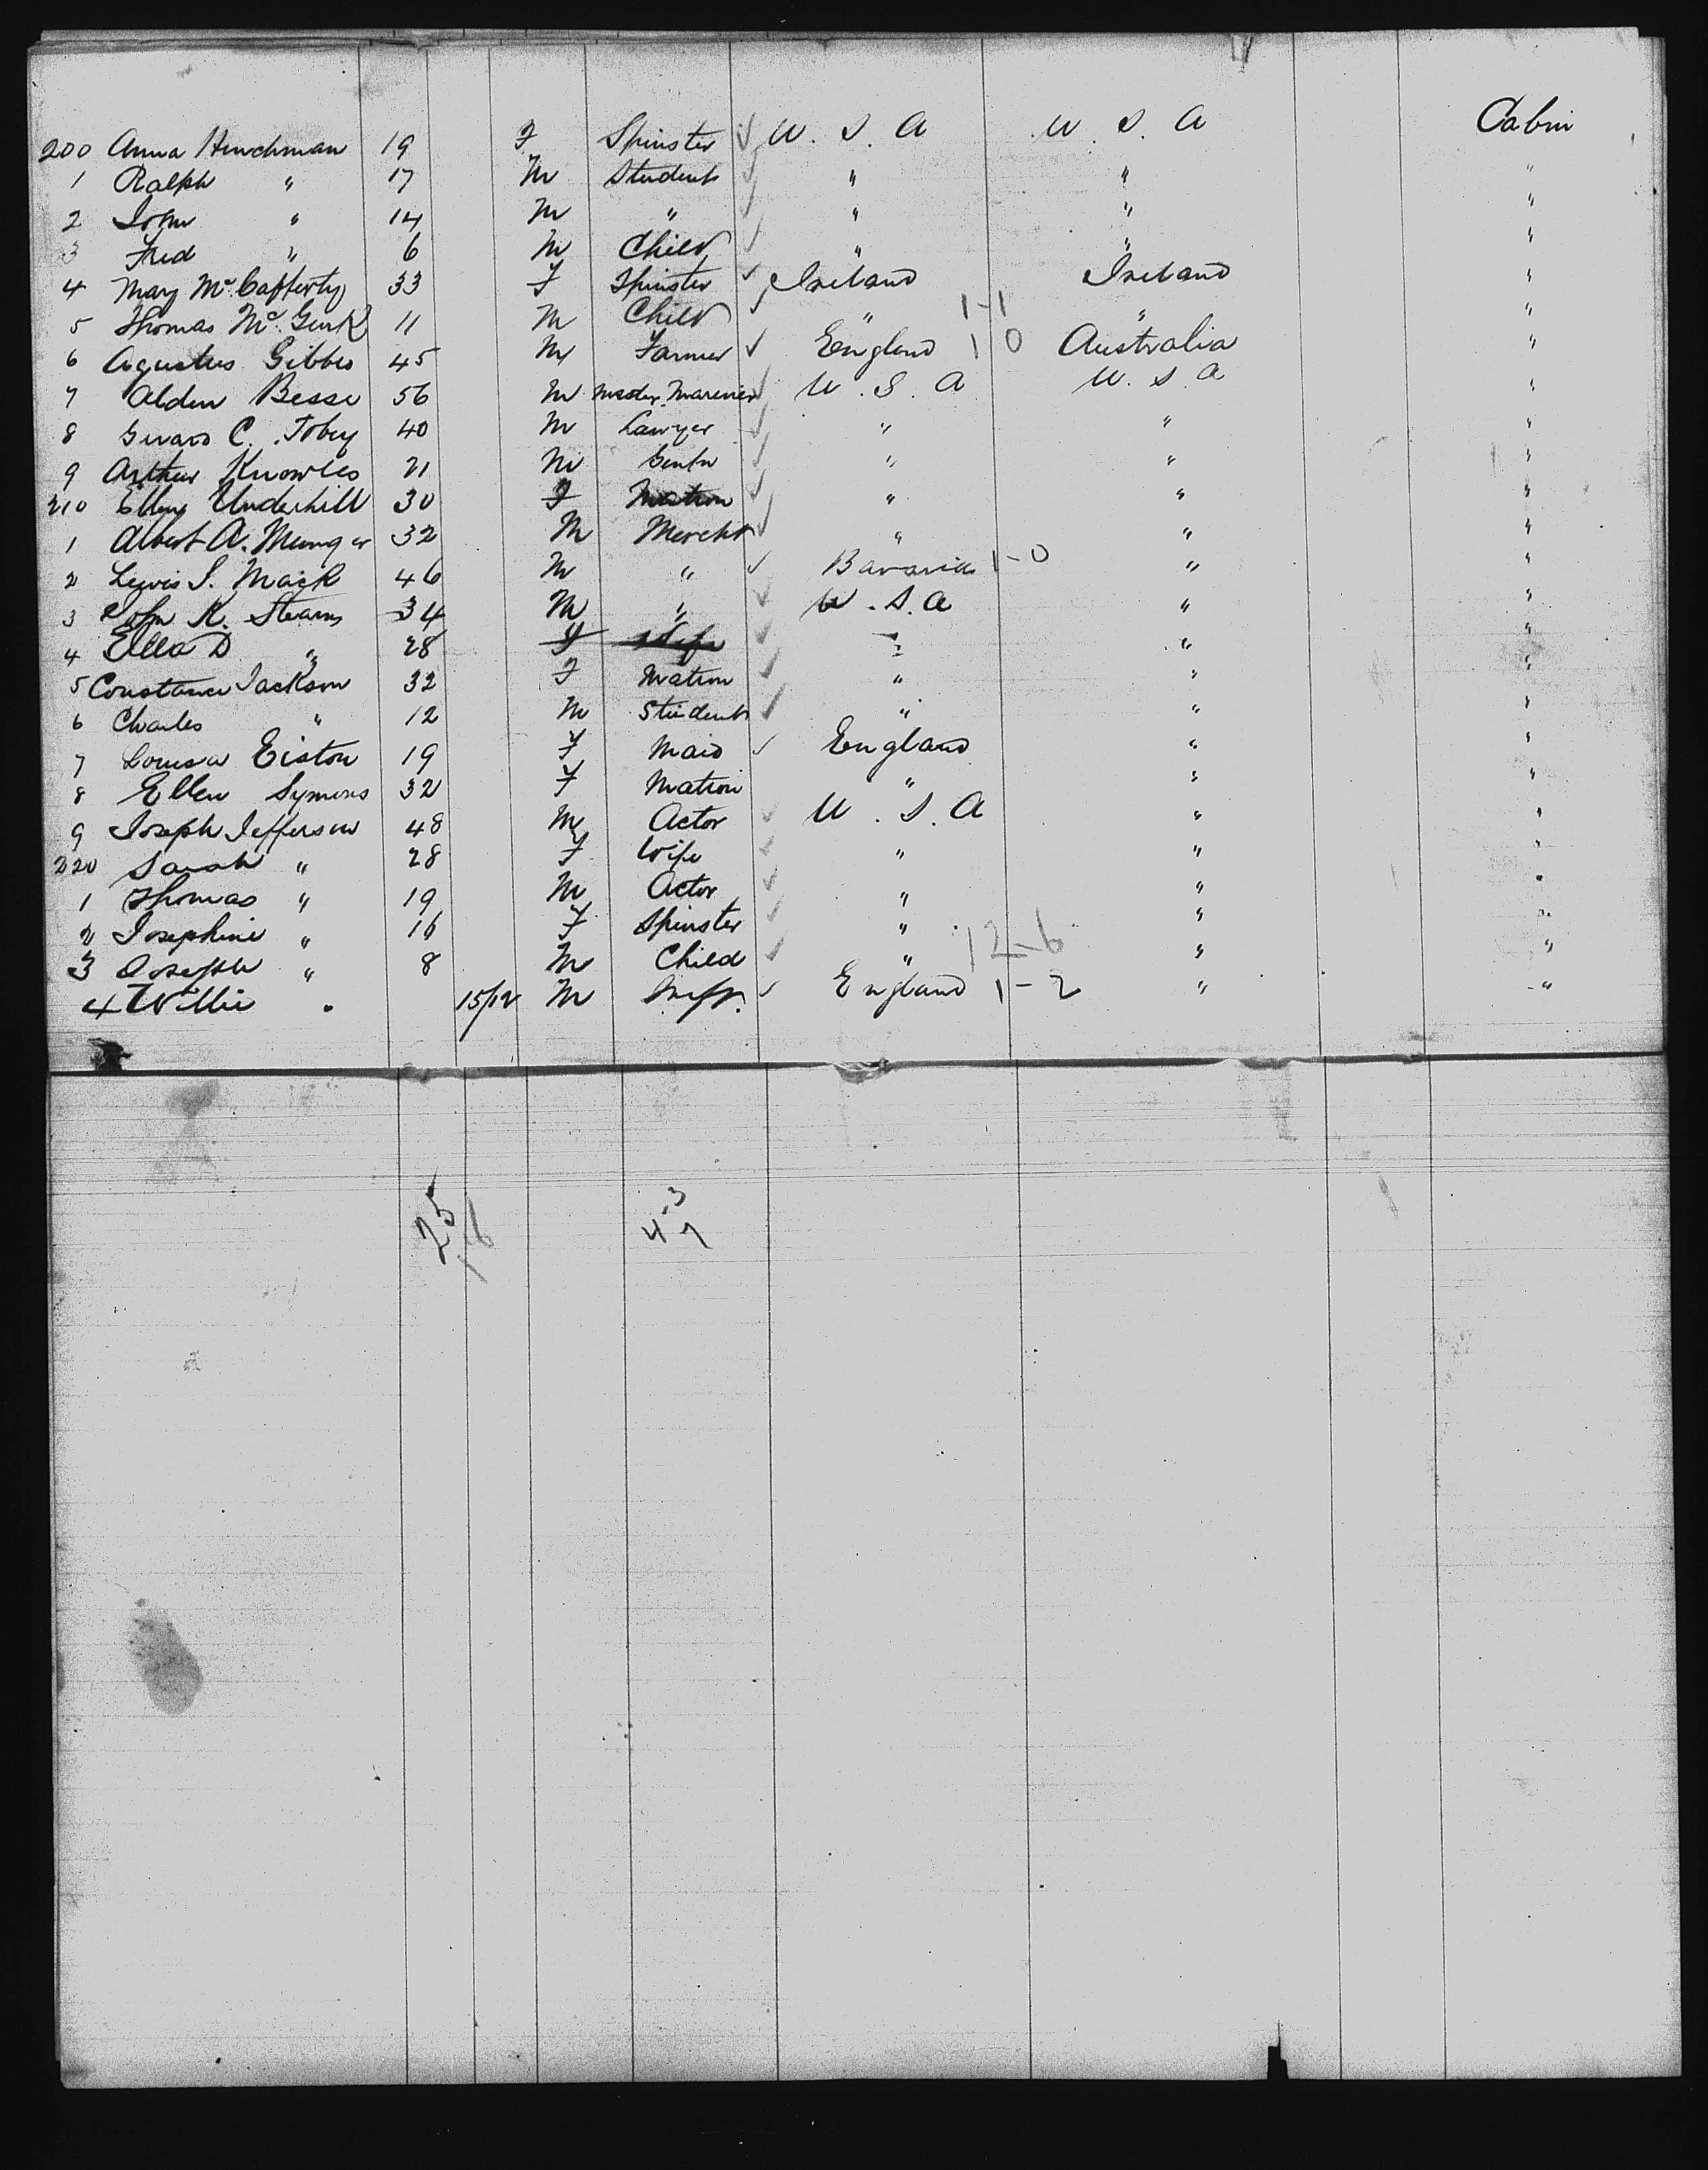 200 Anna Hinchman 19 F Spinster ✓ U. S. A U. S. A Cabin
1 Ralph " 17 M Student ✓ " " "
2 John " 14 M " ✓ " " "
3 Fred " 6 M Child ✓ " " "
4 Mary McCafferty 33 F Spinster ✓ Ireland Ireland "
5 Thomas Mc 11 M Child ✓ " 1-1 " "
6 Agustus Gibbs 45 M Farmer ✓ England 1 0 Australia "
7 Alden Besse 56 M Master Mariner ✓ U. S. A U. S. A "
8 C. Tobey 40 M Lawyer ✓ " " "
9 Arthur Knowles 21 M Gentn ✓ " " "
210 Underhill 30 F Matron ✓ " " "
1 Albert A. Munger 32 M Mercht ✓ " " "
2 Lewis S. Mack 46 M " ✓ Bavaria 1-0 " "
3 John K. Stearns 34 M " ✓ U. S. A " "
4 Ella D " 28 F Wife ✓ " " "
5 Constance Jackson 32 F Matron ✓ " " "
6 Charles " 12 M Student ✓ " " "
7 Louisa Eiston 19 F Maid ✓ England " "
8 Ellen Symons 32 F Matron " " "
9 Joseph Jefferson 48 M Actor ✓ U. S. A " "
220 Sarah " 28 F Wife ✓ " " "
1 Thomas " 19 M Actor ✓ " " "
2 Josephine " 16 F Spinster ✓ " " "
3 Joseph " 8 M Child ✓ " 12-6 " "
4 Willie " 15/12 M ✓ England 1-2 " "
25